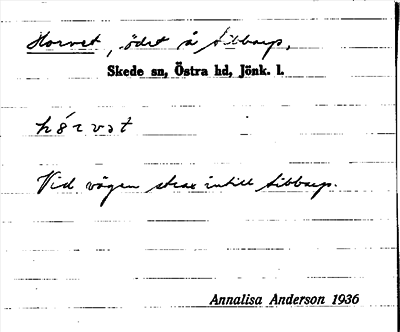 Horvet, ödet å Sibbarp,
Skede sn, Östra hd, Jönk. l.
Vid vägen strax intill Sibbarp.
Annalisa Anderson 1936